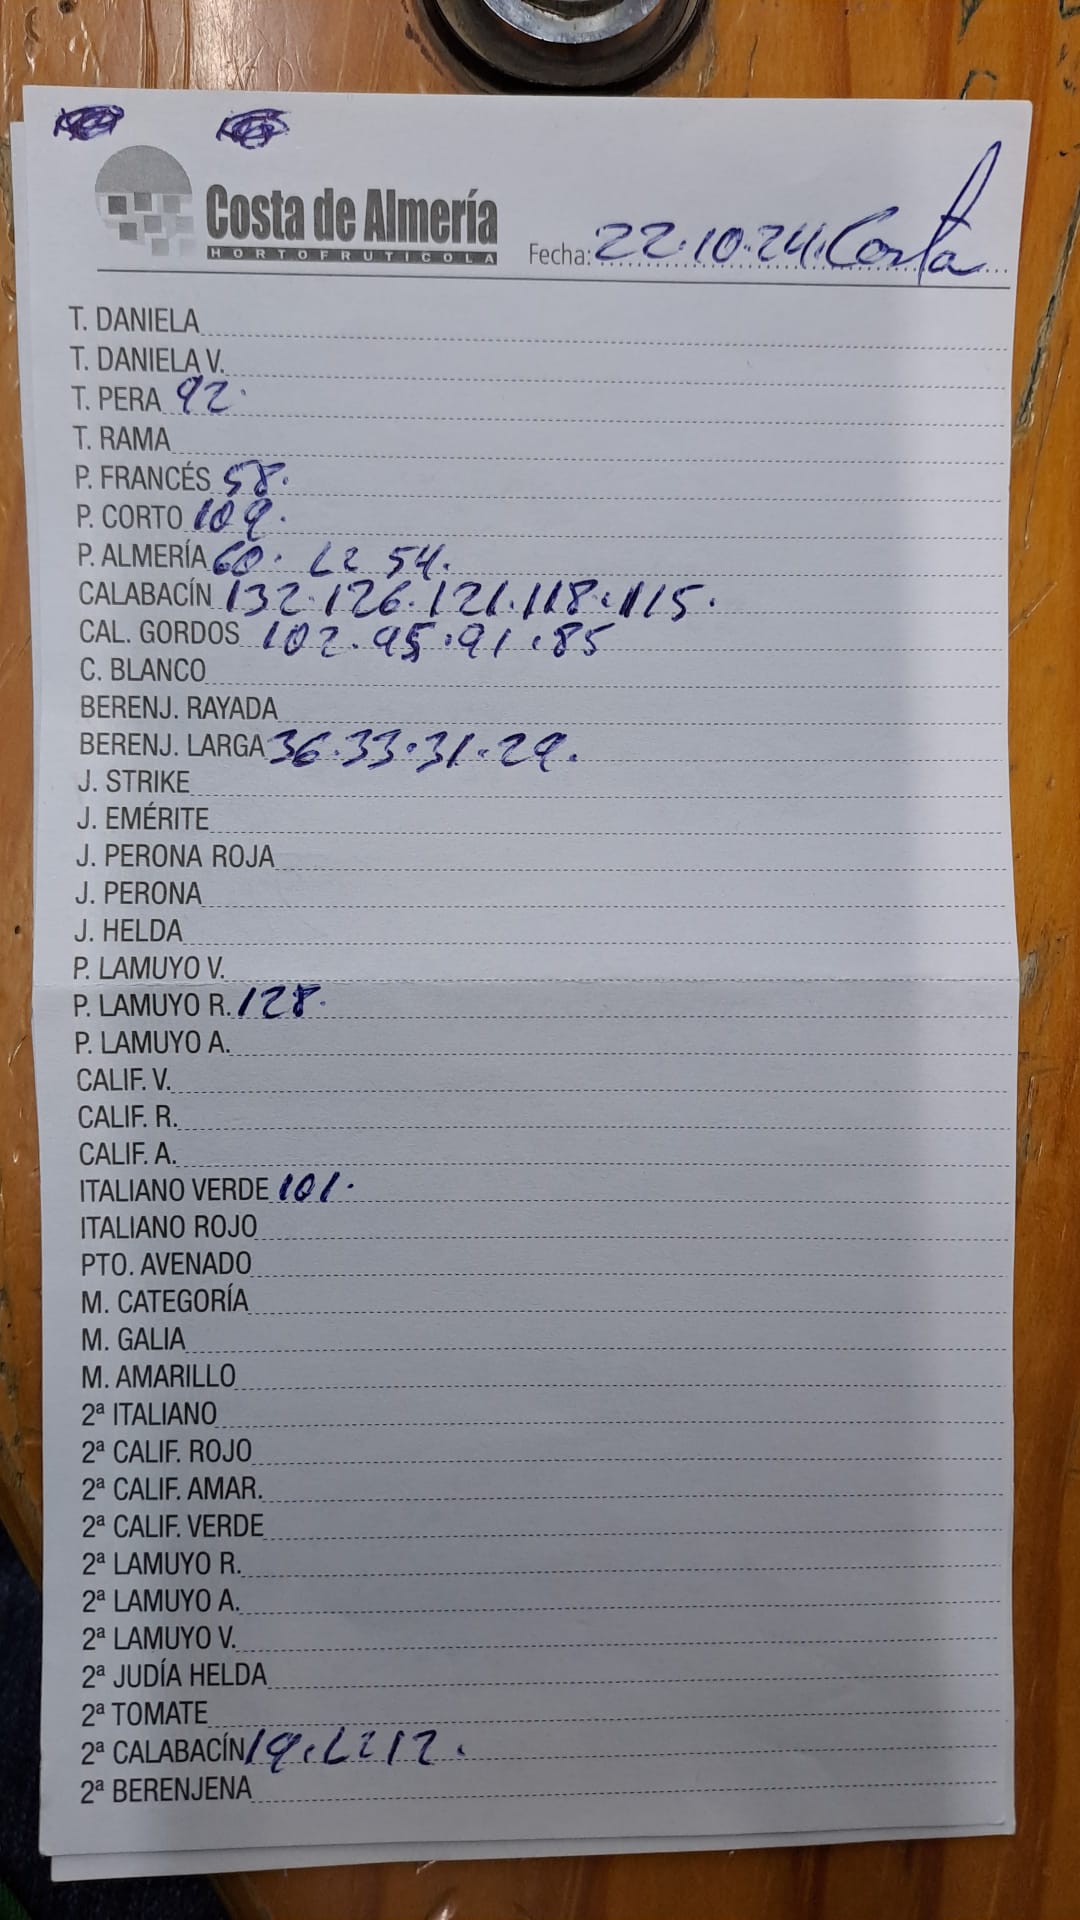 Costa de Almería
HORTOFRUTICOLA
Fecha: 22.10.24. Costa
T. DANIELA
T. DANIELA V.
T. PERA 92.
T. RAMA
P. FRANCÉS 58.
P. CORTO 109.
P. ALMERÍA 60. L2 54.
CALABACÍN 132.126.121.118.115.
CAL. GORDOS 102.95.91.85
C. BLANCO
BERENJ. RAYADA
BERENJ. LARGA 36.33.31.29.
J. STRIKE
J. EMÉRITE
J. PERONA ROJA
J. PERONA
J. HELDA
P. LAMUYO V.
P. LAMUYO R. 128.
P. LAMUYO A.
CALIF. V.
CALIF. R.
CALIF. A.
ITALIANO VERDE 101.
ITALIANO ROJO
PTO. AVENADO
M. CATEGORÍA
M. GALIA
M. AMARILLO
2ª ITALIANO
2ª CALIF. ROJO
2ª CALIF. AMAR.
2ª CALIF. VERDE
2ª LAMUYO R.
2ª LAMUYO A.
2ª LAMUYO V.
2ª JUDÍA HELDA
2ª TOMATE
2ª CALABACÍN 19. L2 12.
2ª BERENJENA